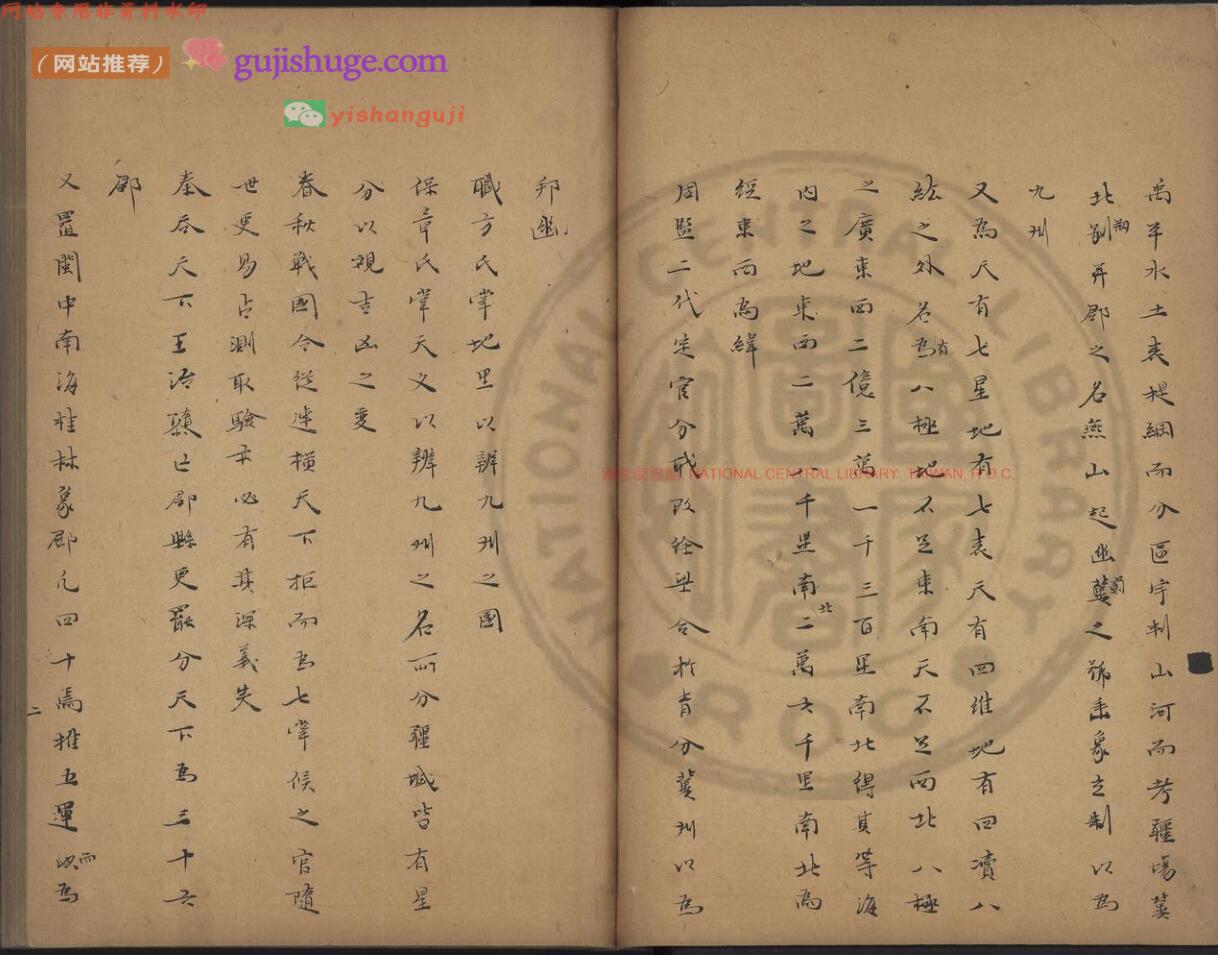 网站专用非资料水印
（网站推荐）
gujishuge.com
yishanguji
禹平水土表提綱而分區宇判山河而考疆場冀
北朔別并郡之名燕山起幽薊之號垂象立制以為
九州
又為天有七星地有七表天有四維地有四瀆八
紘之外名為有八極地不足東南天不足西北八極
之廣東西二億三萬一千三百里南北得其等海
內之地東西二萬八千里南北二萬六千里南北為
經東西為緯
周監二代定官分職改徐梁合於青分冀州以為
邦幽
職方氏掌地里以辨九州之國
保章氏掌天文以辨九州之名所分疆域皆有星
分以觀吉凶之變
春秋戰國合從連橫天下拒而為七掌候之官隨
世更易占測取驗必有其深義失
秦吞天下王治隳亡郡縣更罷分天下為三十六
郡
又置閩中南海桂林象郡凡四十焉推五運而為
二
NATIONAL CENTRAL LIBRARY
R O C
國家圖書館 NATIONAL CENTRAL LIBRARY, TAIWAN, R.O.C